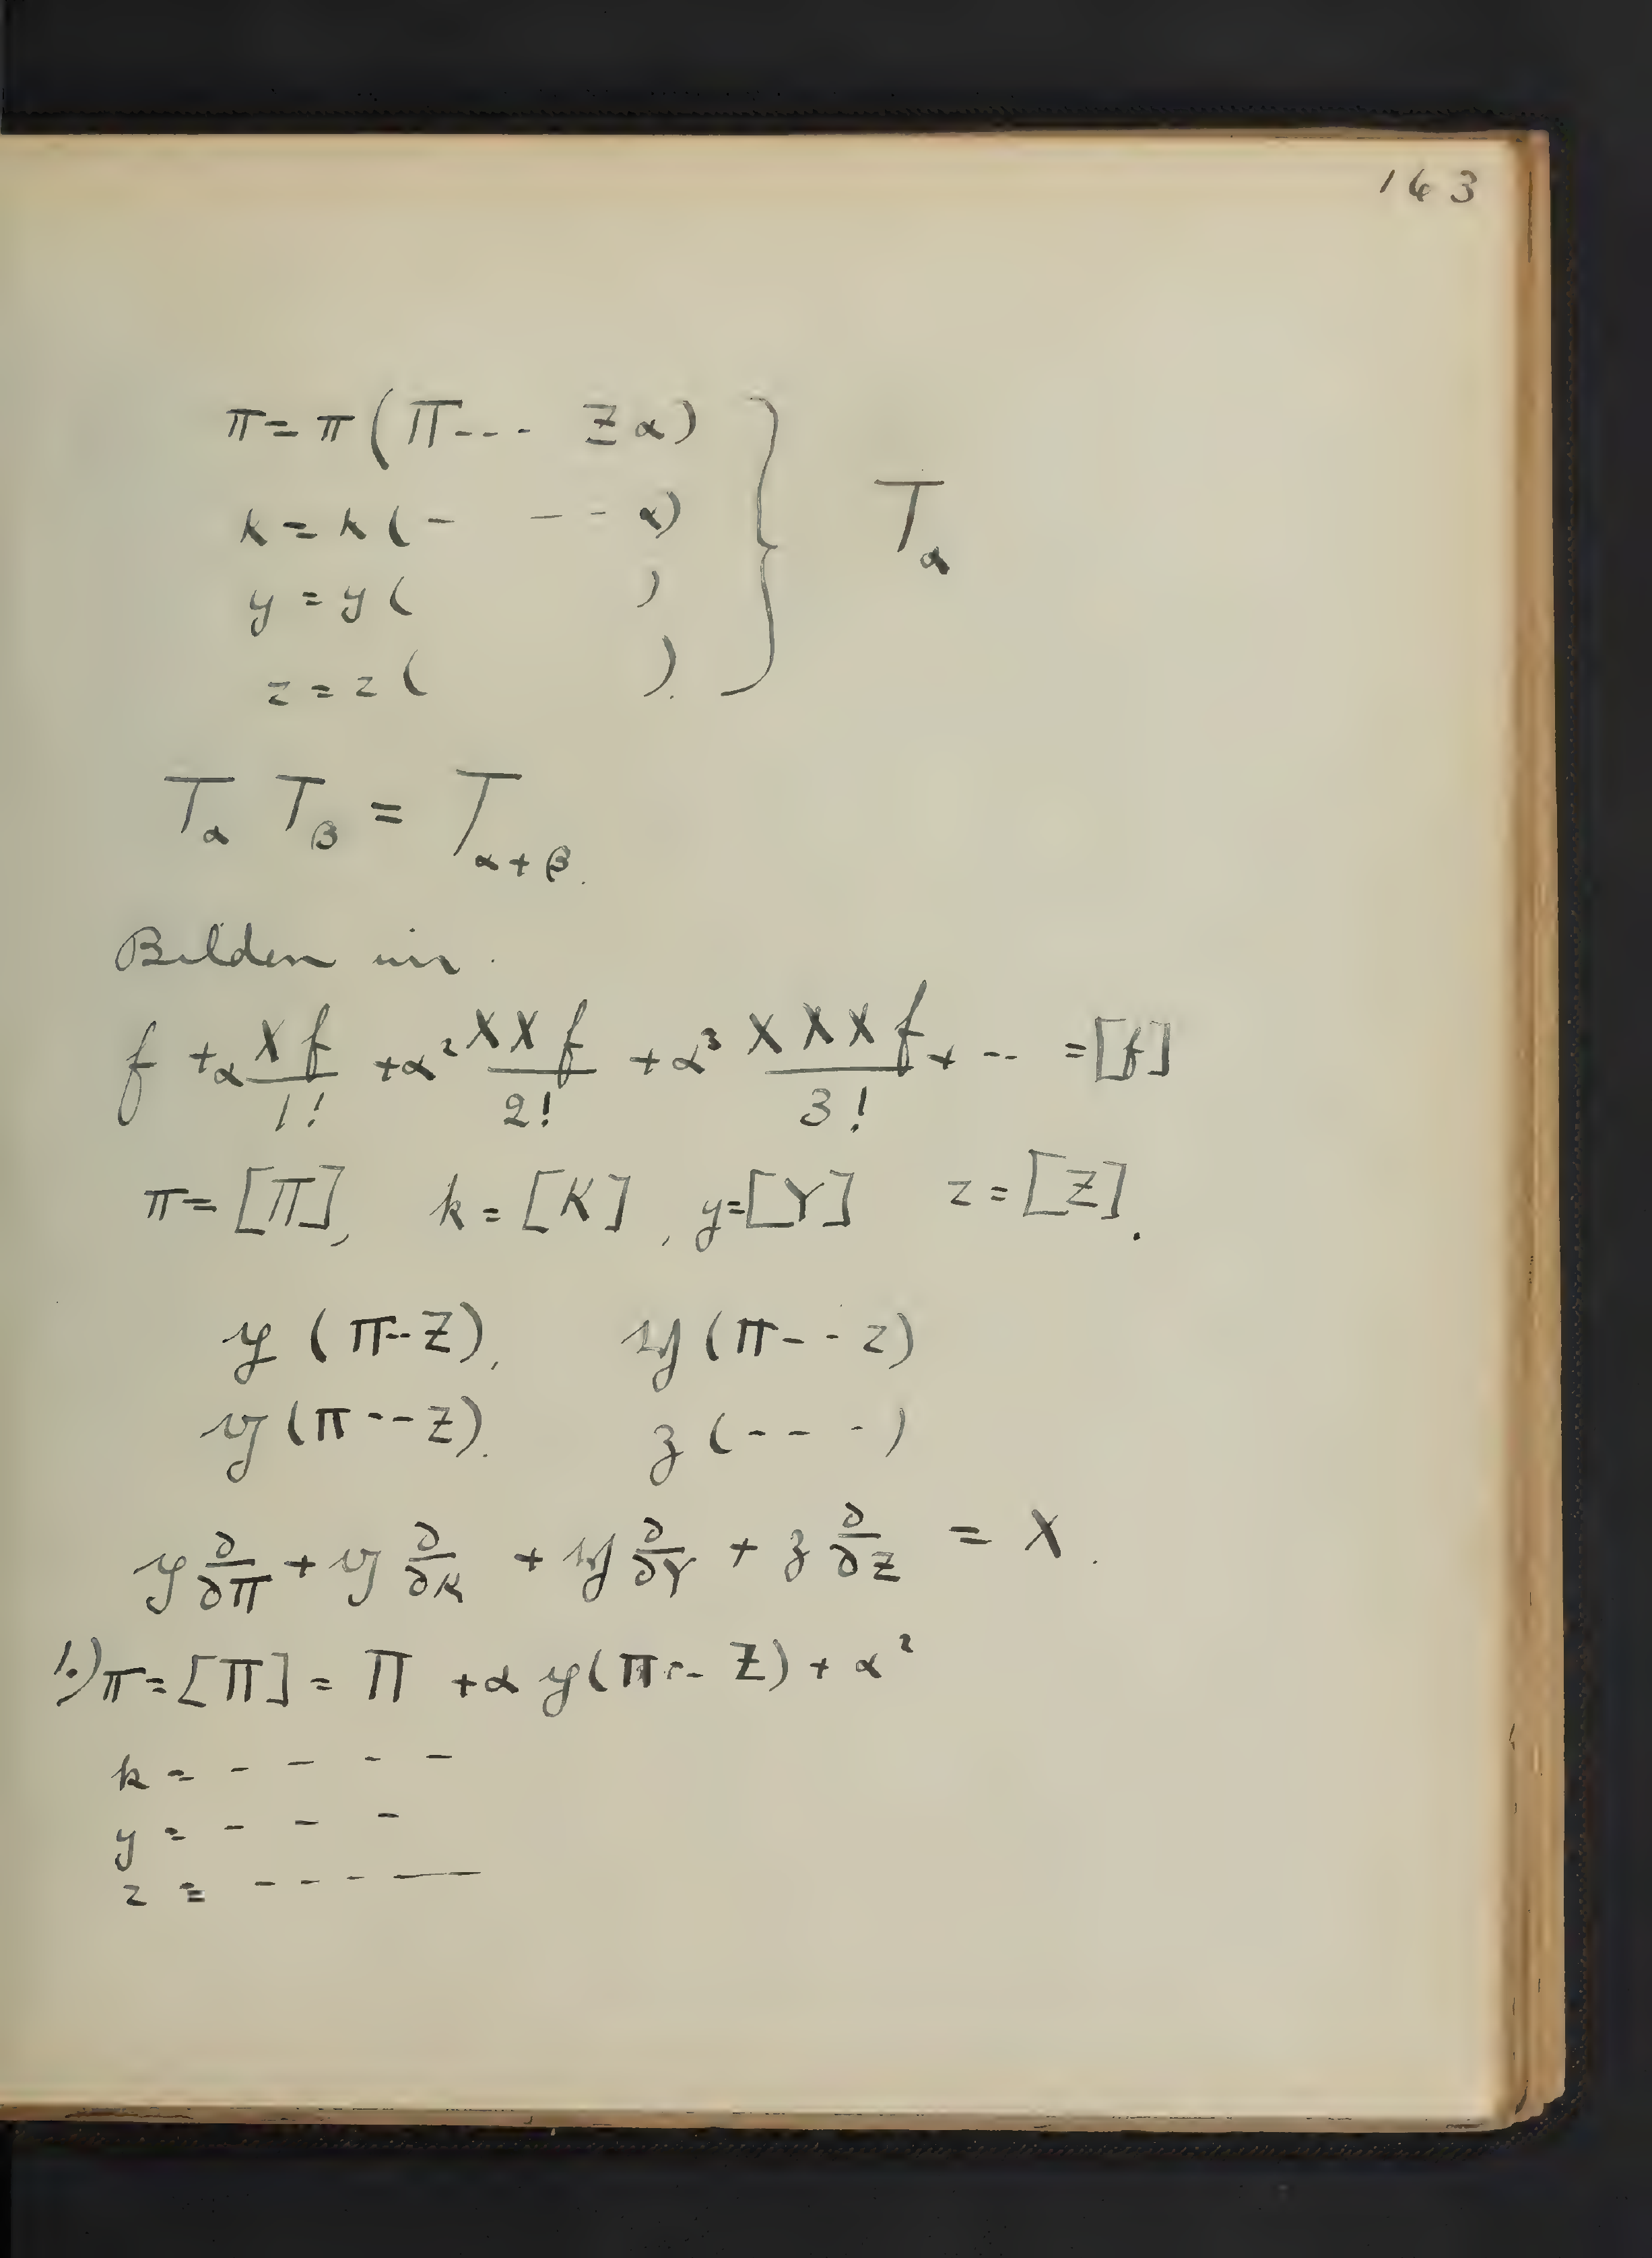 143
π = π (Π--- Z α)
k = k ( - - - α)
y = y ( )
z = z ( ).
T_α
T_α T_β = T_{α+β}.
Bilden wir
f + α Xf/1! + α² XXf/2! + α³ XXXf/3! + -- = [f]
π = [Π], k = [K], y = [Y] z = [Z].
𝔶 (Π--Z), 𝔶 (π--z)
𝔶 (Π---Z). 𝔷 (--- -)
𝔶 ∂/∂Π + 𝔶 ∂/∂K + 𝔶 ∂/∂Y + 𝔷 ∂/∂Z = X.
1.) π = [Π] = Π + α 𝔶 (Π -- Z) + α²
k = - - - -
y = - - -
z = - - - —